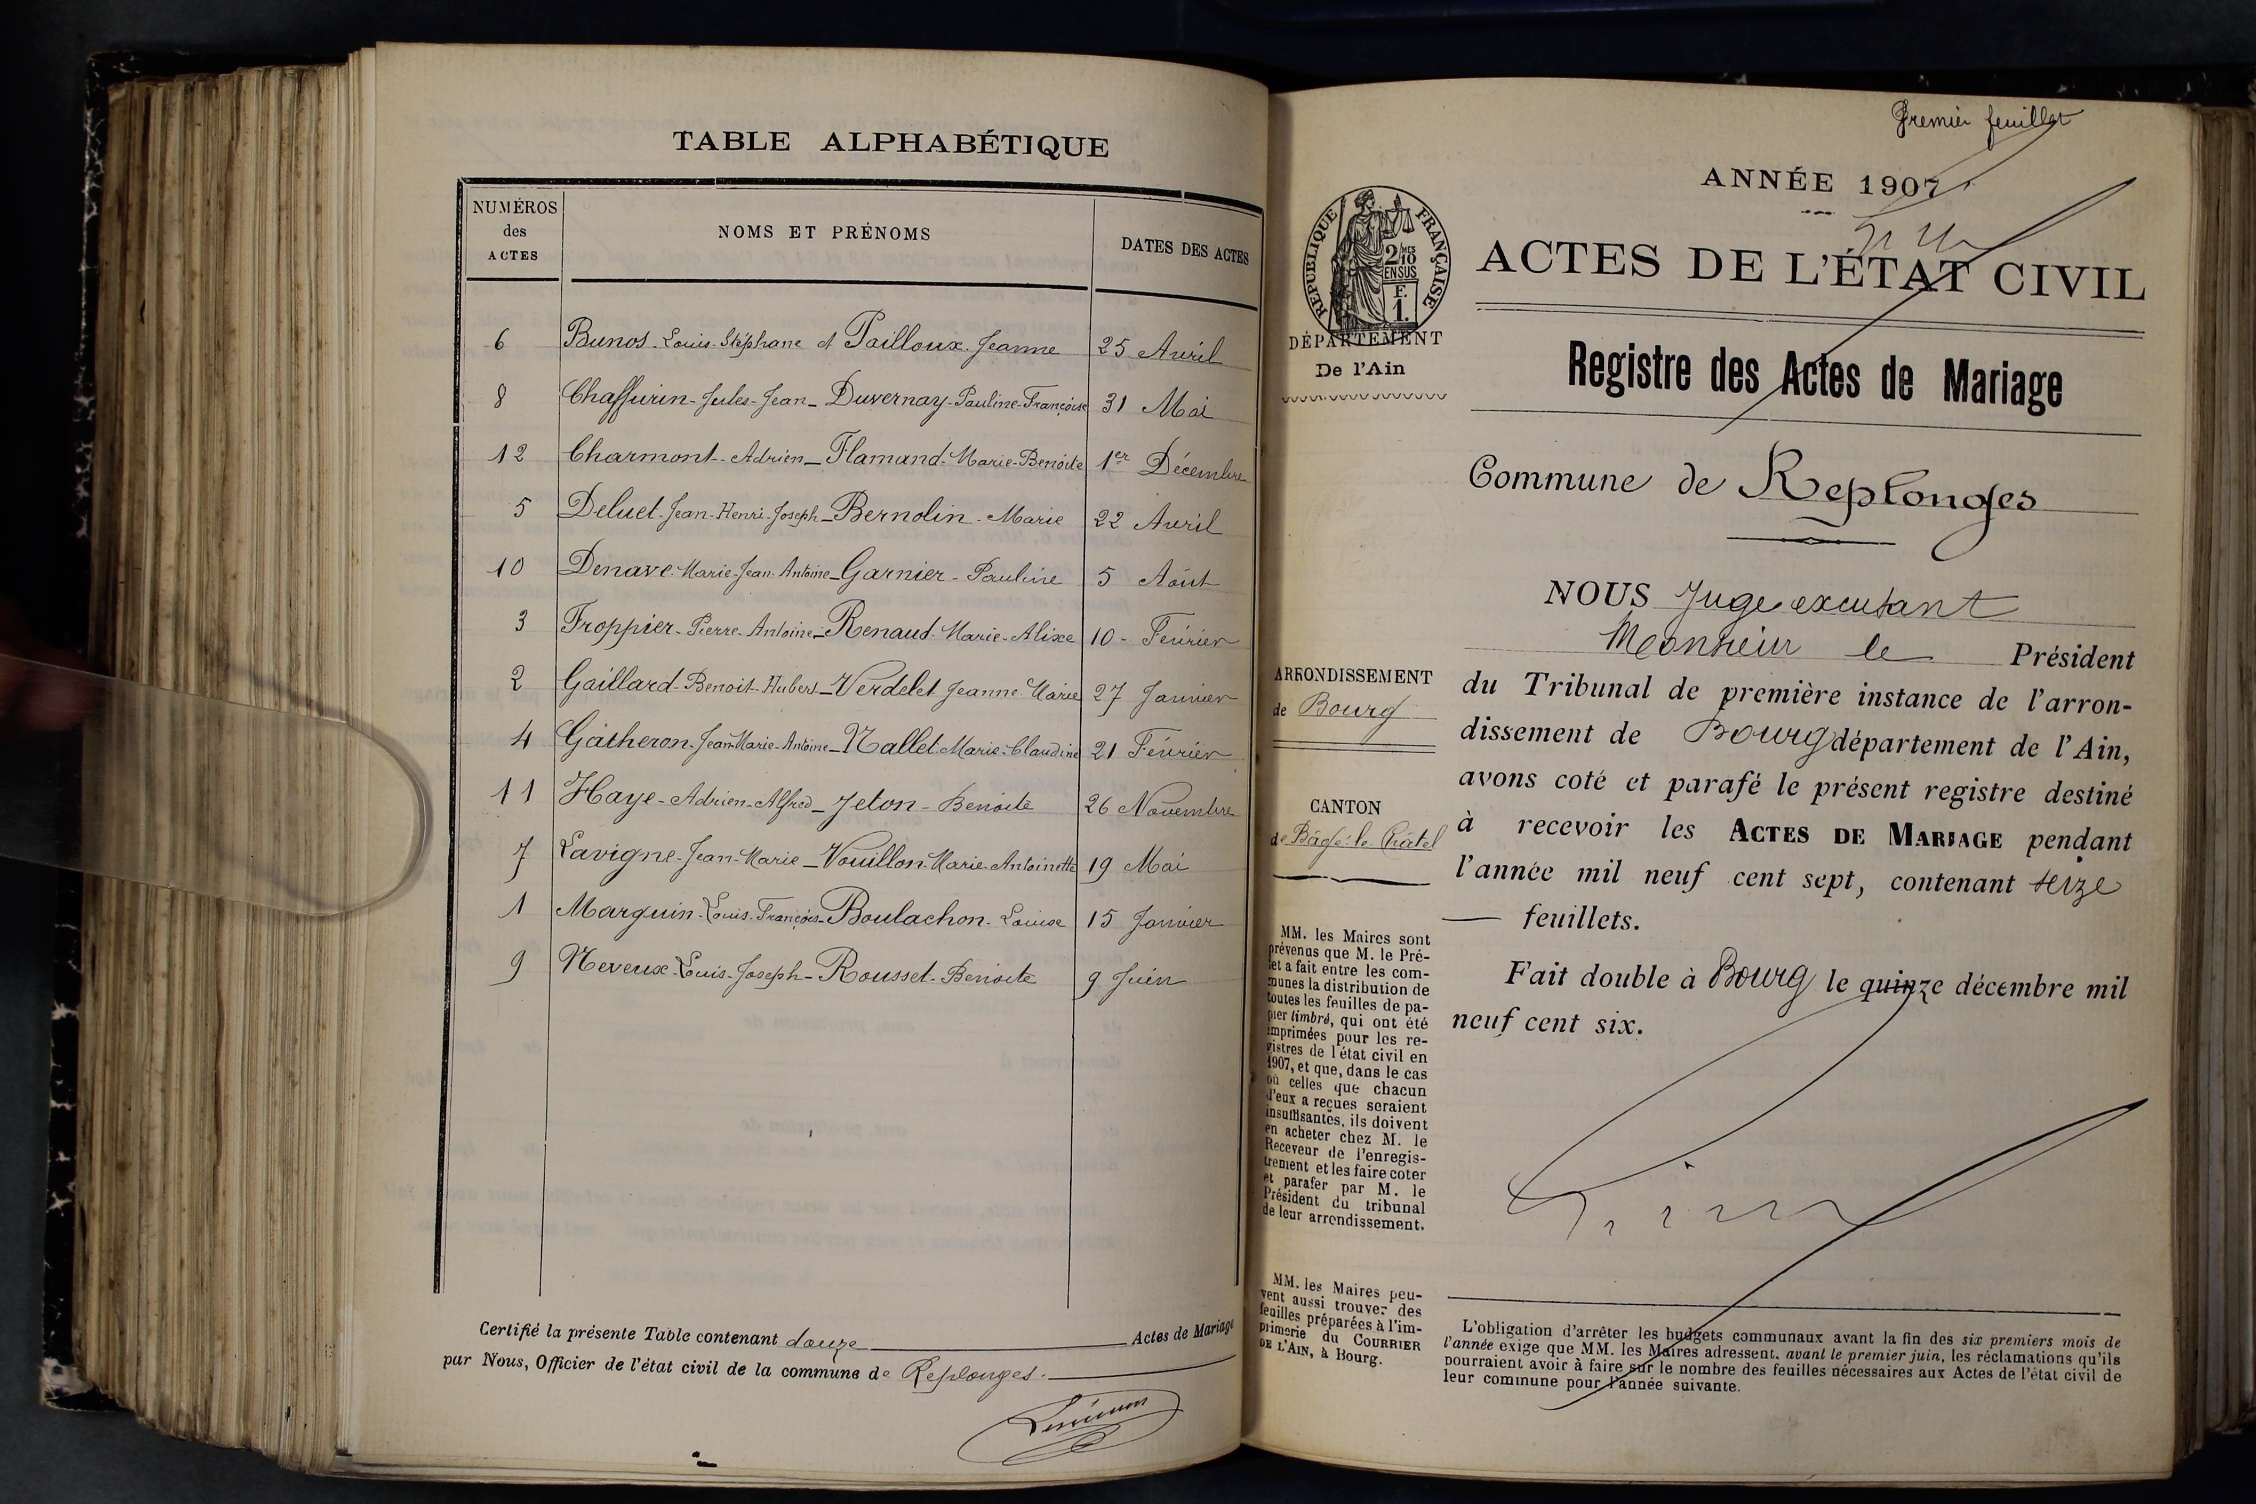 TABLE ALPHABÉTIQUE
NUMÉROS des ACTES NOMS ET PRÉNOMS DATES DES ACTES
6 Bunos-Louis-Stéphane et Pailloux-Jeanne 25 Avril
8 Chaffurin-Jules-Jean-Duvernay-Pauline-Françoise 31 Mai
12 Charmont-Adrien-Flamand-Marie-Benoite 1er Décembre
5 Deluet-Jean-Henri-Joseph-Bernolin-Marie 22 Avril
10 Denave-Marie-Jean-Antoine-Garnier-Pauline 5 Août
3 Froppier-Pierre-Antoine-Renaud-Marie-Alixe 10-Février
2 Gaillard-Benoit-Hubert-Verdelet Jeanne Marie 27 Janvier
4 Gatheron-Jean-Marie-Antoine-Nallet-Marie-Claudine 21 Février
11 Haye-Adrien-Alfred-Jeton-Benoite 26 Novembre
7 Lavigne-Jean-Marie-Vouillon-Marie-Antoinette 19 Mai
1 Marguin-Louis-François-Boulachon-Louise 15 Janvier
9 Neveux-Louis-Joseph-Rousset-Benoite 9 Juin
Certifié la présente Table contenant douze Actes de Mariage
par Nous, Officier de l'état civil de la commune de Replonges.
Premier feuillet
ANNÉE 1907
RÉPUBLIQUE FRANÇAISE
2/10mes
EN SUS
F.
1.
DÉPARTEMENT
De l'Ain
ACTES DE L'ÉTAT CIVIL
Registre des Actes de Mariage
Commune de Replonges
ARRONDISSEMENT
de Bourg
CANTON
de Bâgé-le-Châtel
NOUS Juge excusant
Monsieur le Président
du Tribunal de première instance de l'arron-
dissement de Bourg département de l'Ain,
avons coté et parafé le présent registre destiné
à recevoir les ACTES DE MARIAGE pendant
l'année mil neuf cent sept, contenant seize
feuillets.
Fait double à Bourg le quinze décembre mil
neuf cent six.
MM. les Maires sont
prévenus que M. le Pré-
fet a fait entre les com-
munes la distribution de
toutes les feuilles de pa-
pier timbré, qui ont été
imprimées pour les re-
gistres de l'état civil en
1907, et que, dans le cas
où celles que chacun
d'eux a reçues seraient
insuffisantes, ils doivent
en acheter chez M. le
Receveur de l'enregis-
trement et les faire coter
et parafer par M. le
Président du tribunal
de leur arrondissement.
MM. les Maires peu-
vent aussi trouver des
feuilles préparées à l'im-
primerie du COURRIER
DE L'AIN, à Bourg.
L'obligation d'arrêter les budgets communaux avant la fin des six premiers mois de
l'année exige que MM. les Maires adressent, avant le premier juin, les réclamations qu'ils
pourraient avoir à faire sur le nombre des feuilles nécessaires aux Actes de l'état civil de
leur commune pour l'année suivante.